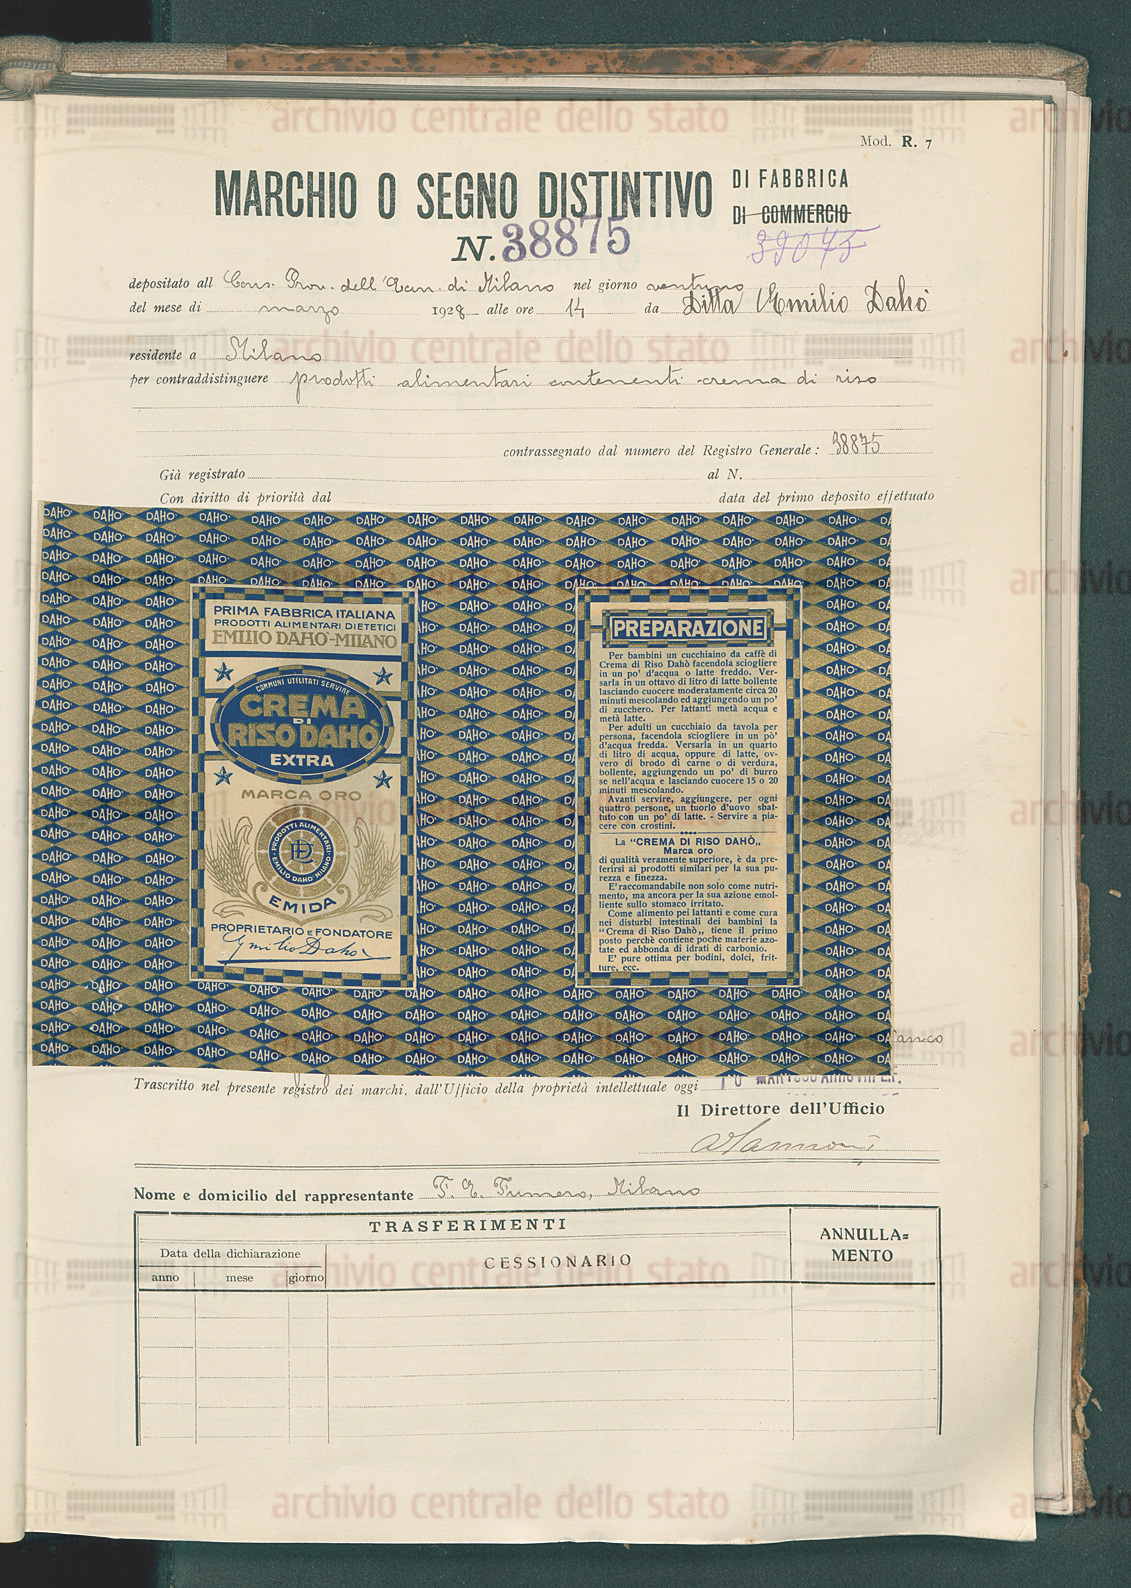 Mod. R. 7
MARCHIO O SEGNO DISTINTIVO DI FABBRICA
DI COMMERCIO
N. 38875
39045
depositato all Cons. Prov. dell'Econ. di Milano nel giorno ventuno
del mese di marzo 1928 alle ore 14 da Ditta Emilio Dahò
residente a Milano
per contraddistinguere prodotti alimentari contenenti crema di riso
contrassegnato dal numero del Registro Generale: 38875
Già registrato al N.
Con diritto di priorità dal data del primo deposito effettuato
PRIMA FABBRICA ITALIANA
PRODOTTI ALIMENTARI DIETETICI
EMILIO DAHO-MILANO
COMMUNI UTILITATI SERVIRE
CREMA
DI
RISO DAHÒ
EXTRA
MARCA ORO
PRODOTTI ALIMENTARI
EMILIO DAHO MILANO
EMIDA
PROPRIETARIO E FONDATORE
Emilio Dahò
PREPARAZIONE
Per bambini un cucchiaino da caffè di
Crema di Riso Dahò facendola sciogliere
in un po' d'acqua o latte freddo. Ver-
sarla in un ottavo di litro di latte bollente
lasciando cuocere moderatamente circa 20
minuti mescolando ed aggiungendo un po'
di zucchero. Per lattanti: metà acqua e
metà latte.
Per adulti un cucchiaio da tavola per
persona, facendola sciogliere in un pò'
d'acqua fredda. Versarla in un quarto
di litro di acqua, oppure di latte, ov-
vero di brodo di carne o di verdura,
bollente, aggiungendo un po' di burro
se nell'acqua e lasciando cuocere 15 o 20
minuti mescolando.
Avanti servire, aggiungere, per ogni
quattro persone, un tuorlo d'uovo sbat-
tuto con un po' di latte. - Servire a pia-
cere con crostini.
La "CREMA DI RISO DAHÒ„
Marca oro
di qualità veramente superiore, è da pre-
ferirsi ai prodotti similari per la sua pu-
rezza e finezza.
E' raccomandabile non solo come nutri-
mento, ma ancora per la sua azione emol-
liente sullo stomaco irritato.
Come alimento pei lattanti e come cura
nei disturbi intestinali dei bambini la
"Crema di Riso Dahò„ tiene il primo
posto perchè contiene poche materie azo-
tate ed abbonda di idrati di carbonio.
E' pure ottima per bodini, dolci, frit-
ture, ecc.
Trascritto nel presente registro dei marchi, dall'Ufficio della proprietà intellettuale oggi
Il Direttore dell'Ufficio
Nome e domicilio del rappresentante F. E. Fumero, Milano
TRASFERIMENTI
ANNULLA=
MENTO
Data della dichiarazione
CESSIONARIO
anno mese giorno
archivio centrale dello stato